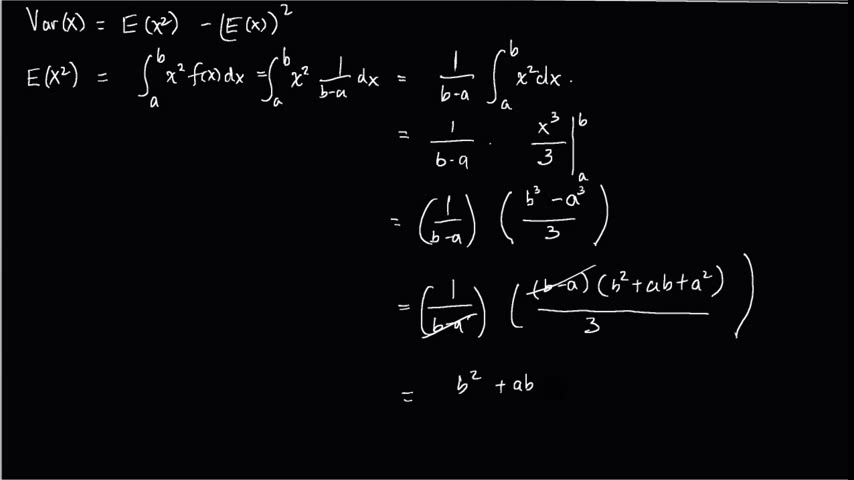 Var(x) = E(x²) - (E(x))²
E(x²) = ∫_a^b x² f(x) dx = ∫_a^b x² 1/(b-a) dx = 1/(b-a) ∫_a^b x² dx.
= 1/(b-a) · x³/3 |_a^b
= (1/(b-a)) ((b³ - a³)/3)
= (1/(b-a)) ((b-a)(b² + ab + a²)/3)
= b² + ab